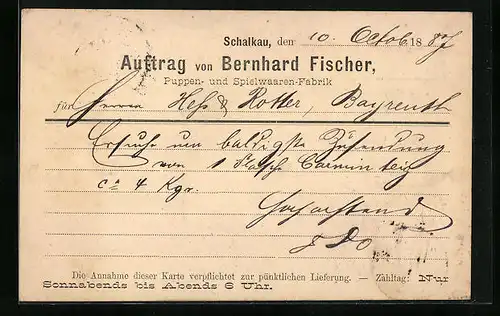 Schalkau, den 10. Octob. 1887
Auftrag von Bernhard Fischer,
Puppen- und Spielwaaren-Fabrik
für Herren Heß & Rotter, Bayreuth
Ersuche um baldigste Zusendung
von 1 Carminteig
ca 4 Kgr.
Die Annahme dieser Karte verpflichtet zur pünktlichen Lieferung. — Zahltag: Nur
Sonnabends bis Abends 6 Uhr.